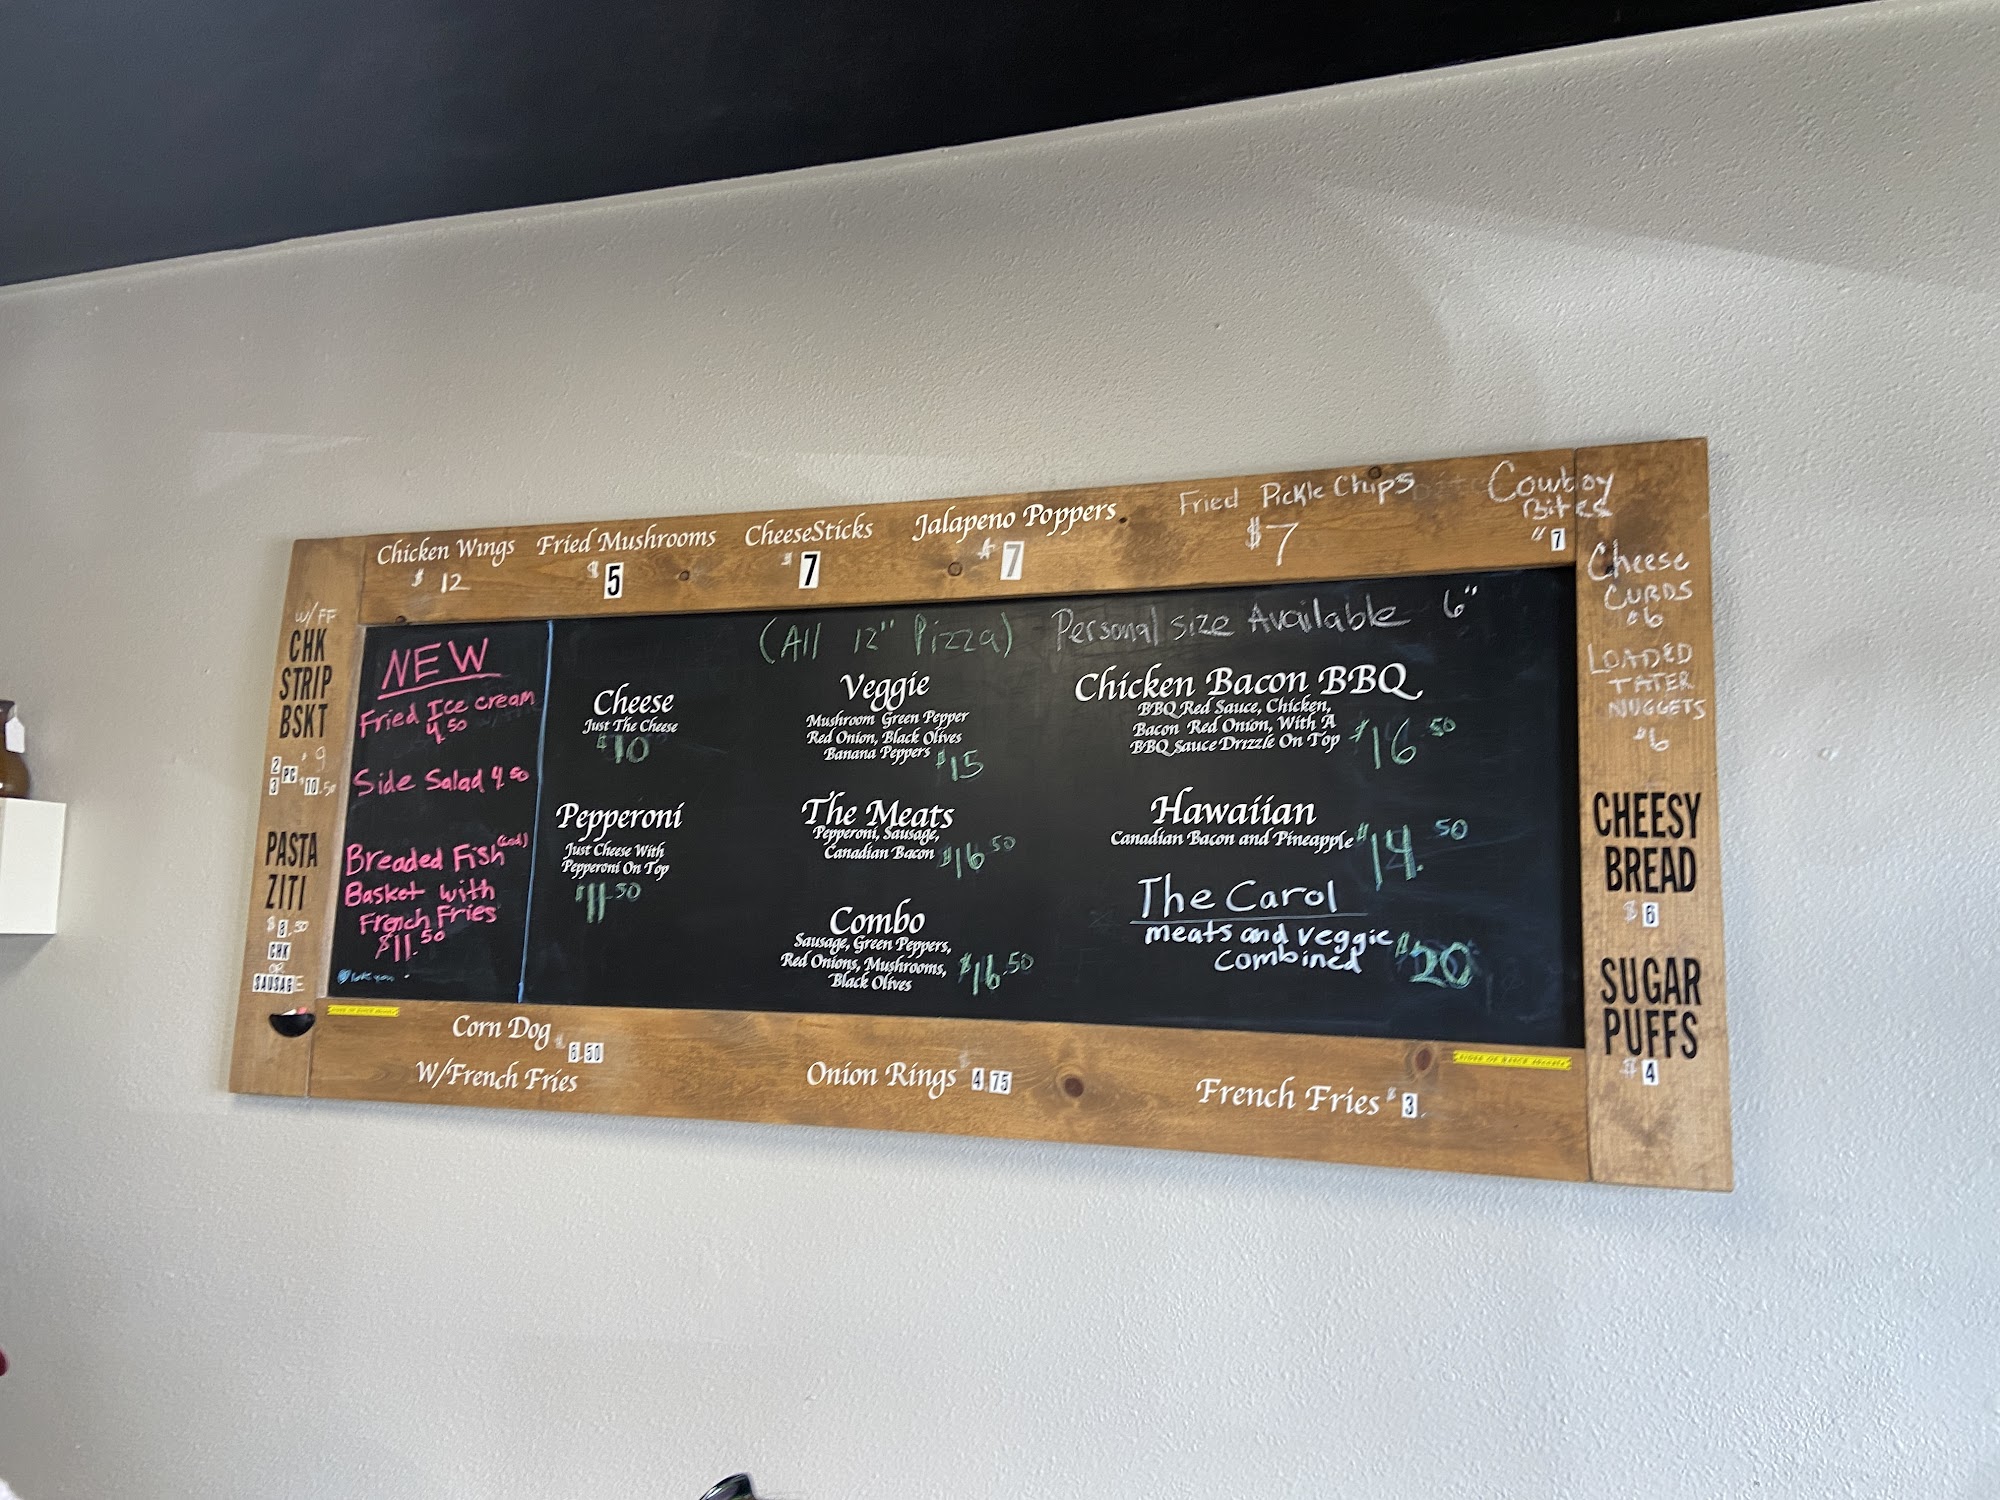 Chicken Wings
$ 12
Fried Mushrooms
$ 5
CheeseSticks
$ 7
Jalapeno Poppers
$ 7
Fried Pickle Chips
$7
Cowboy
Bites
7
W/FF
CHK
STRIP
BSKT
2 $9
3 PC $10.50
PASTA
ZITI
$8.50
CHK
OR
SAUSAGE
NEW
Fried Ice cream
4.50
Side Salad 4.50
Breaded Fish (Cod)
Basket with
French Fries
$11.50
love you
(All 12" Pizza) Personal size Available 6"
Cheese
Just The Cheese
$10
Pepperoni
Just Cheese With
Pepperoni On Top
$11.50
Veggie
Mushroom Green Pepper
Red Onion, Black Olives
Banana Peppers $15
The Meats
Pepperoni, Sausage,
Canadian Bacon $16.50
Combo
Sausage, Green Peppers,
Red Onions, Mushrooms,
Black Olives $16.50
Chicken Bacon BBQ
BBQ Red Sauce, Chicken,
Bacon Red Onion, With A
BBQ Sauce Drizzle On Top $16.50
Hawaiian
Canadian Bacon and Pineapple $14.50
The Carol
meats and veggie
combined $20
Cheese
CURDS
$6
LOADED
TATER
NUGGETS
$6
CHEESY
BREAD
$ 6
SUGAR
PUFFS
$ 4
Corn Dog $6.50
W/French Fries
Onion Rings 4.75
French Fries $3.